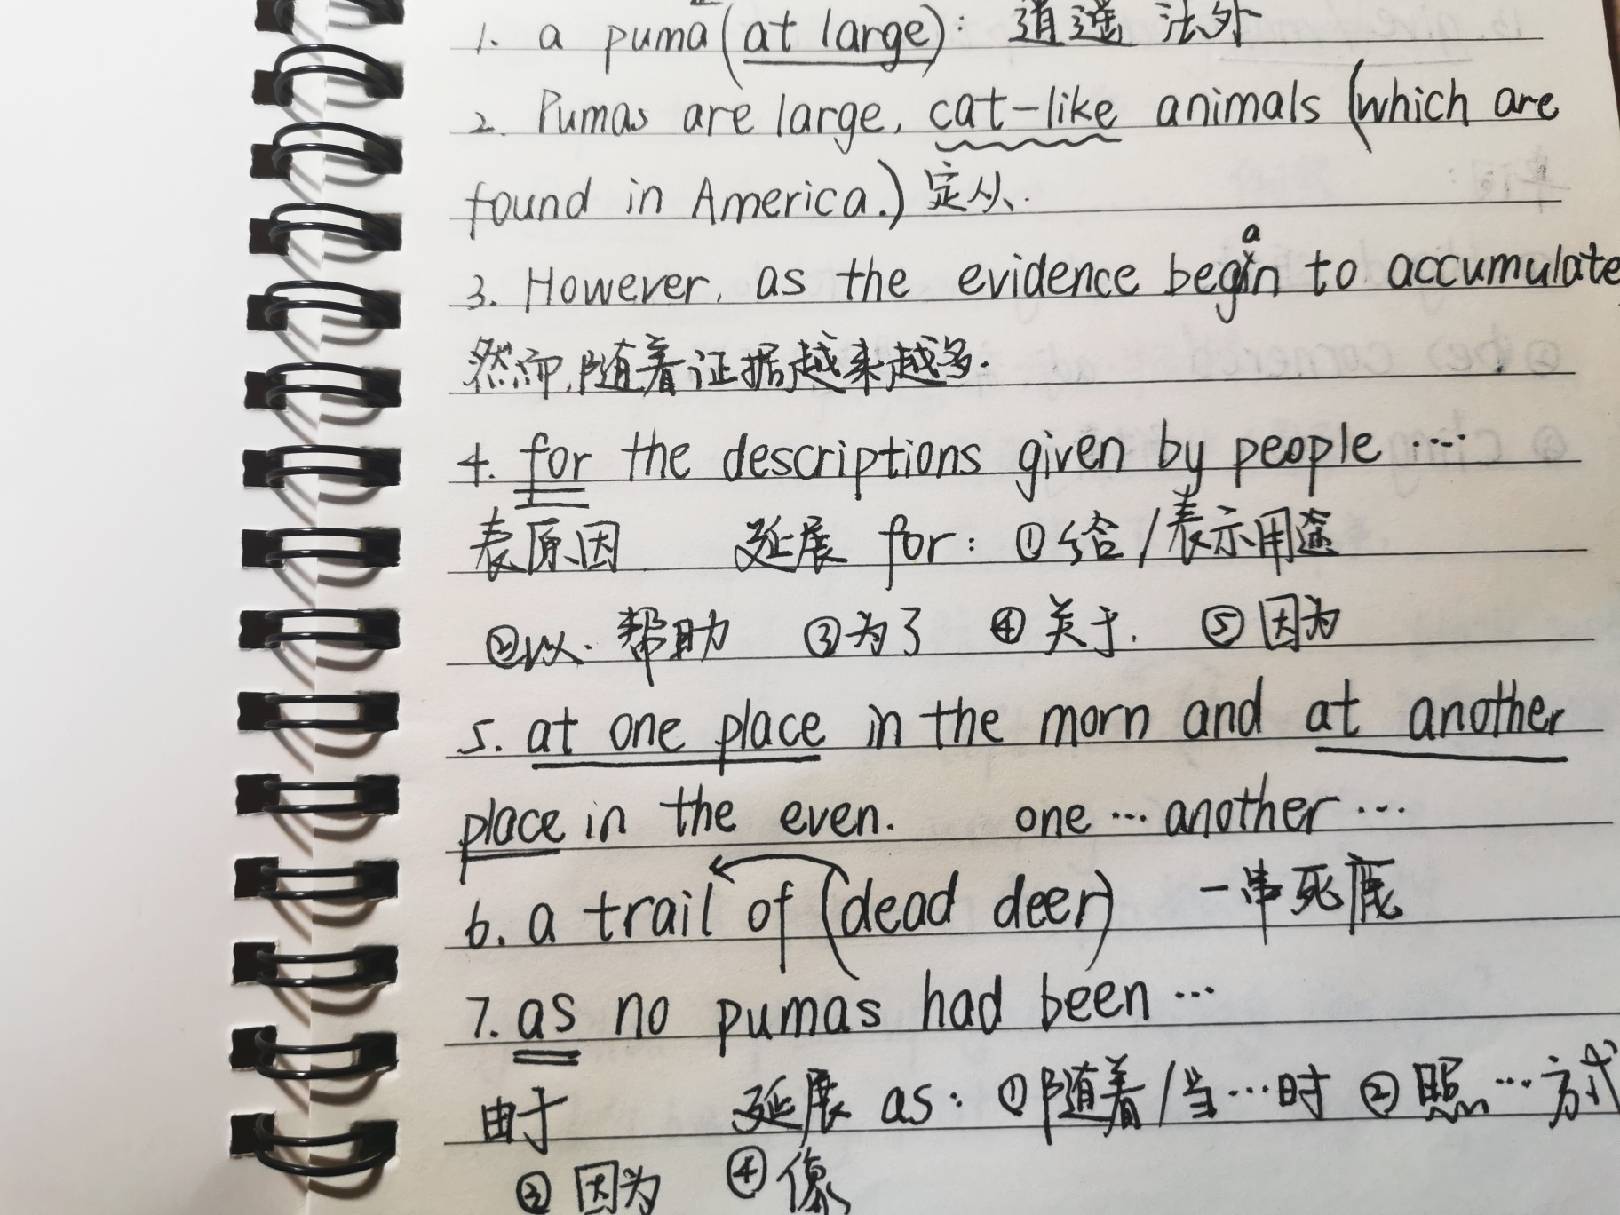 1. a puma (at large): 逍遥法外
2. Pumas are large, cat-like animals (which are
found in America.) 定从.
3. However, as the evidence began to accumulate
然而,随着证据越来越多.
4. for the descriptions given by people ……
表原因 延展 for: ①给/表示用途
②以. 帮助 ③为了 ④关于. ⑤因为
5. at one place in the morn and at another
place in the even. one … another …
6. a trail of (dead deer) 一串死鹿
7. as no pumas had been …
由于 延展 as: ①随着/当…时 ②照…方式
③因为 ④像